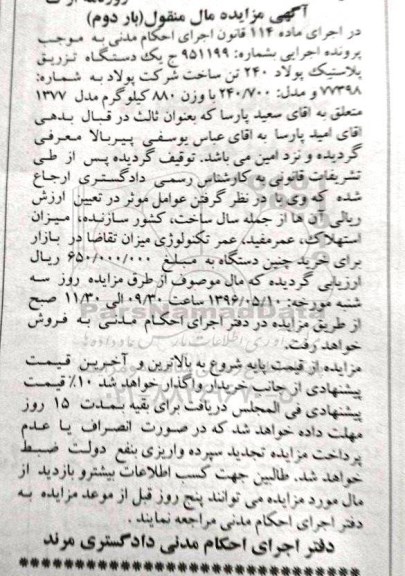 آگهی مزایده مال منقول(بار دوم)
در اجرای ماده ۱۱۴ قانون اجرای احکام مدنی به موجب
پرونده اجرایی بشماره: ۹۵۱۱۹۹ ج یک دستگاه تزریق
پلاستیک پولاد ۲۴۰ تن ساخت شرکت پولاد به شماره:
۷۷۳۹۸ و مدل: ۲۴۰/۷۰۰ با وزن ۸۸۰ کیلوگرم مدل ۱۳۷۷
متعلق به اقای سعید پارسا که بعنوان ثالث در قبال بدهی
اقای امید پارسا به اقای عباس یوسفی پیربالا معرفی
گردیده و نزد امین می باشد. توقیف گردیده پس از طی
تشریفات قانونی به کارشناس رسمی دادگستری ارجاع
شده که وی با در نظر گرفتن عوامل موثر در تعیین ارزش
ریالی آن ها از جمله سال ساخت، کشور سازنده، میزان
استهلاک، عمرمفید، عمر تکنولوژی میزان تقاضا در بازار
برای خرید چنین دستگاه به مبلغ ۶۵۰/۰۰۰/۰۰۰ ریال
ارزیابی گردیده که مال موصوف از طرق مزایده روز سه
شنبه مورخه: ۱۳۹۶/۰۵/۱۰ ساعت ۰۹/۳۰ الی ۱۱/۳۰ صبح
از طریق مزایده در دفتر اجرای احکام مدنی به فروش
خواهد رفت.
مزایده از قیمت پایه شروع به بالاترین و آخرین قیمت
پیشنهادی از جانب خریدار واگذار خواهد شد ۱۰٪ قیمت
پیشنهادی فی المجلس دریافت برای بقیه بمدت ۱۵ روز
مهلت داده خواهد شد که در صورت انصراف یا عدم
پرداخت مزایده تجدید سپرده واریزی بنفع دولت ضبط
خواهد شد. طالبین جهت کسب اطلاعات بیشترو بازدید از
مال مورد مزایده می توانند پنج روز قبل از موعد مزایده به
دفتر اجرای احکام مدنی مراجعه نمایند.
دفتر اجرای احکام مدنی دادگستری مرند
ParsNamadData